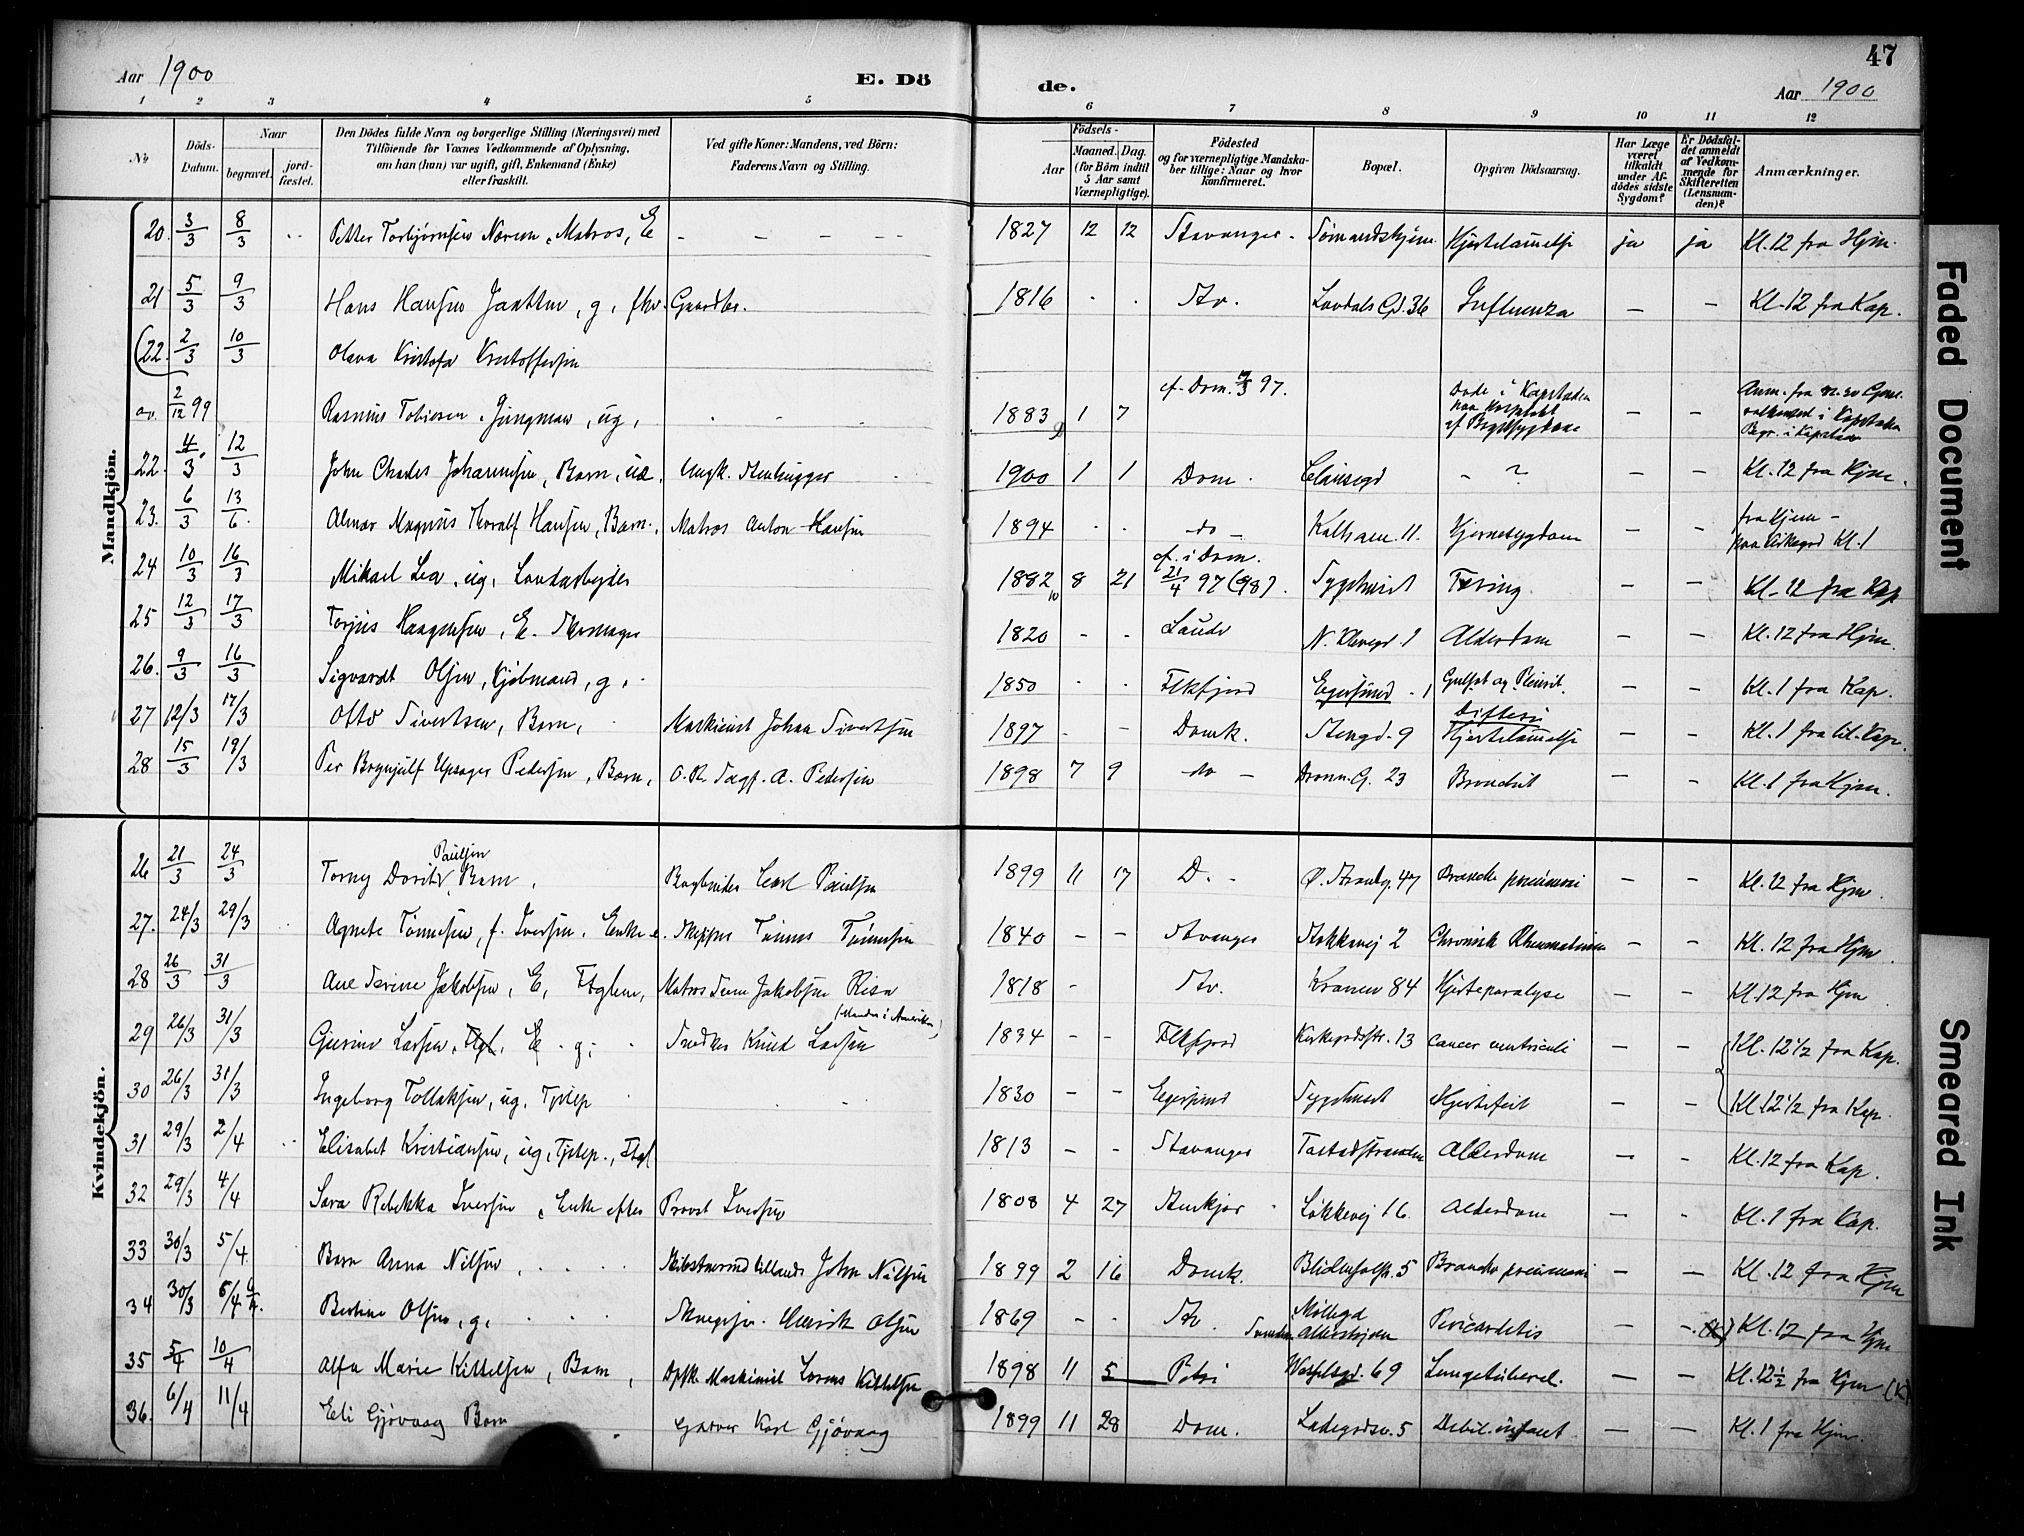 47
Aar 1900
E. Dö
de.
Aar 1900
1 2 3 4 5 6 7 8 9 10 11 12
No
Döds-Datum.
Naar
begravet.
jord-fæstet.
Den Dödes fulde Navn og borgerlige Stilling (Næringsvei) med
Tilföiende for Voxnes Vedkommende af Oplysning,
om han (hun) var ugift, gift, Enkemand (Enke)
eller fraskilt.
Ved gifte Koner: Mandens, ved Börn:
Faderens Navn og Stilling.
Födsels-
Aar
Maaned. Dag.
(for Börn indtil
5 Aar samt
Værnepligtige).
Födested
og for værnepligtige Mandska-
ber tillige: Naar og hvor
konfirmeret.
Bopæl.
Opgiven Dödsaarsag.
Har Læge
været
tilkaldt
under Af-
dödes sidste
Sygdom?
Er Dödsfal-
det anmeldt
af Vedkom-
mende for
Skifteretten
(Lensman-
den)?
Anmærkninger.
Mandkjön.
20. 3/3 8/3 Petter Torbjørnsen Matros, E 1827 12 12 Stavanger Sømandshjem Hjertelamelse ja ja Kl. 12 fra Hjm.
21 5/3 9/3 Hans Hansen Jaatten, g, fhv. Gaardbr. 1816 Stv. Løvdals G. 36 Influenza — — Kl. 12 fra Kap.
(22. 2/3 10/3 Olava Kristofa Kristoffersen
2/12 99 Rasmus Tobiesen, Jungman, ug, 1883 1 7 cf. Dom. 97. Døde i Kapstaden paa Hospital af — — Anm. fra i Kapstaden Begr. i Kapstaden
22. 4/3 12/3 John Charles Johannesen, Barn, uæ. Ungk. Stenhugger 1900 1 1 Dom. Clausegd - ? — — Kl. 12 fra Hjm.
23. 6/3 13/6. Almar Magnus Thoralf Hansen, Barn, Matros Anton Hansen 1894 do — Kalham. 11. Hjernesygdom — — fra Hjem - paa Kirkegrd Kl. 1
24 10/3 16/3 Mikael Lea, ug, Landarbejder 1882 8 21 cf. i Dom. 21/4 97 (98). Sygehuset Tæring. — — Kl. 12 fra Kap
25 12/3 17/3 Torjus Haagensen, E. Skomager 1820 - - Saude N. Klevegd. 1 Alderdom — — Kl. 12 fra Hjm.
26. 9/3 16/3 Sigvardt Olsen, Kjøbmand, g, 1850 Flekkfjord Egersund Gulsot og Pleurit. — — Kl. 1 fra Kap.
27 12/3 17/3 Otto Sivertsen, Barn, Maskinist Johan Sivertsen 1897 - - Domk. Stengd. 9 Difteri Hjertelamelse — — Kl. 1 fra lil. Kap.
28 15/3 19/3 Per Brynjulf Upsager Pedersen, Barn, O. R. Sagf. A. Pedersen 1898 7 9 do — Dronn. G. 23 Bronchit — — Kl. 1 fra Hjm.
Kvindekjön.
26 21/3 24/3 Torny Dorthe Paulsen Barn, Bogbinder Carl Paulsen 1899 11 17 D. Ø. Strandg. 47 Broncho pneumoni — — Kl. 12 fra Hjm.
27. 24/3 29/3 Agnete Tønnesen, f. Iversen, Enke e. Skipper Tønnes Tønnesen 1840 — — Stavanger Stokkavej 2 Chronisk Rheumatisme — — Kl. 12 fra Hjm.
28 26/3 31/3 Ane Serine Jakobsen, E, Ftglem, Matros Sven Jakobsen Risa 1818 - Stv. Kranen 84 Hjerteparalyse — — Kl. 12 fra Hjm
29 26/3 31/3 Gurine Larsen, Ftgl. E. g, Snedker Knud Larsen (Manden i Amerika) 1834 - - Flekkfjord Kirkegrdsstr. 13 Cancer ventriculi — — Kl. 12½ fra Kap.
30 26/3 31/3 Ingeborg Tollaksen, ug. Tjstep 1830 - - Egersund Sygehuset Hjertefeil — — Kl. 12½ fra Kap.
31 29/3 2/4 Elisabet Kristiansen, ug, Tjstep., Ftgl 1813 - - Stavanger Tastadstranden Alderdom — — Kl. 12 fra Kap.
32 29/3 4/4 Sara Rebekka Iversen, Enke efter Provst Iversen 1808 4 27 Stenkjær Løkkevej 16. Alderdom — - Kl. 1 fra Kap.
33 30/3 5/4. Barn Anna Nilsen, John Nilsen 1899 2 16 Domk. 5 Broncho pneumoni — — Kl. 12 fra Hjm
34 30/3 5/4 6/4. Bertine Olsen, g, Henrik Olsen 1869 - - Stv. Møllegd Pericarditis — — Kl. 12 fra Hjm
35 5/4 10/4 Alfa Marie Kittelsen, Barn, Opsk. Maskinist Lorens Kittelsen 1898 11 5 Petri 69 Lungetuberel. — — Kl. 12½ fra Hjm (K)
36. 6/4 11/4 Eli Gjøvaag Barn Garver Karl Gjøvaag 1899 11 28 Dom. Ladegrdsv. 5 Debil. infant — — Kl. 1 fra Hjm.
Faded Document
Smeared Ink